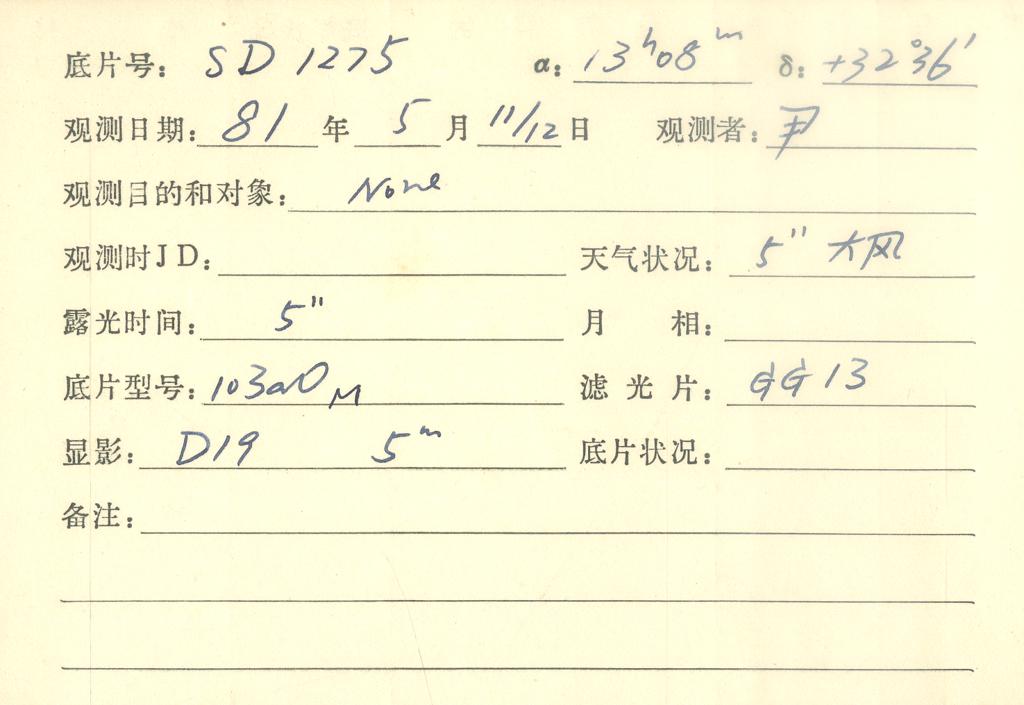 底片号: SD 1275 α: 13ʰ08ᵐ δ: +32°36′
观测日期: 81 年 5 月 11/12 日 观测者: 尹
观测目的和对象: None
观测时JD: 天气状况: 5" 大风
露光时间: 5" 月 相:
底片型号: 103aO M 滤 光 片: GG 13
显影: D19 5ᵐ 底片状况:
备注: